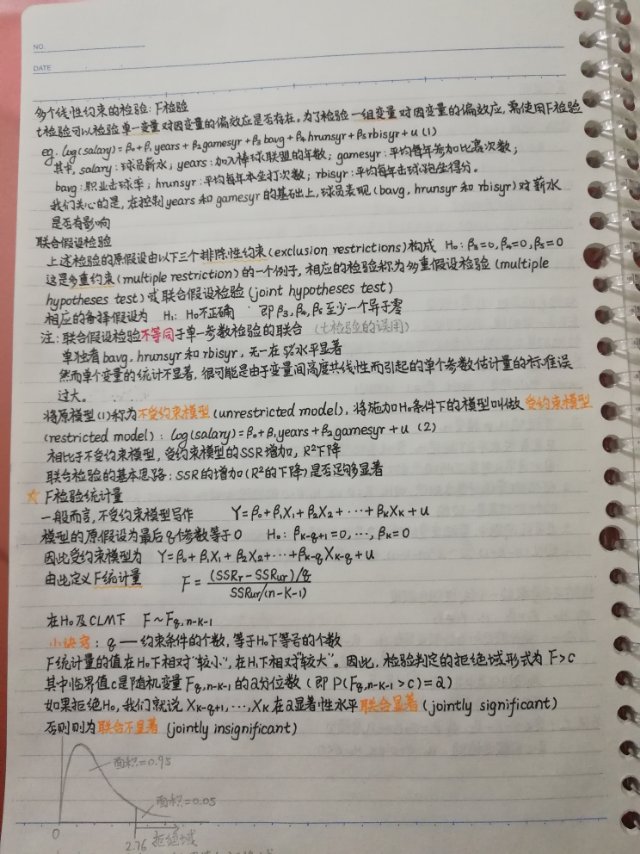 NO.
DATE
多个线性约束的检验：F检验
t检验可以检验单一变量对因变量的偏效应是否存在。为了检验一组变量对因变量的偏效应，需使用F检验
eg. log(salary)=β₀+β₁years+β₂gamesyr+β₃bavg+β₄hrunsyr+β₅rbisyr+u (1)
其中，salary：球员薪水；years：加入棒球联盟的年数；gamesyr：平均每年参加比赛次数；
bavg：职业击球率；hrunsyr：平均每年本垒打次数；rbisyr：平均每年击球跑垒得分。
我们关心的是，在控制years和gamesyr的基础上，球员表现(bavg, hrunsyr和rbisyr)对薪水
是否有影响
联合假设检验
上述检验的原假设由以下三个排除性约束(exclusion restrictions)构成 H₀: β₃=0, β₄=0, β₅=0
这是多重约束(multiple restriction)的一个例子，相应的检验称为多重假设检验(multiple
hypotheses test)或联合假设检验(joint hypotheses test)
相应的备择假设为 H₁: H₀不正确 即β₃, β₄, β₅至少一个异于零
注：联合假设检验不等同于单一参数检验的联合 (t检验的误用)
单独看bavg, hrunsyr和rbisyr，无一在5%水平显著
然而单个变量的统计不显著，很可能是由于变量间高度共线性而引起的单个参数估计量的标准误
过大。
将原模型(1)称为不受约束模型(unrestricted model)，将施加H₀条件下的模型叫做受约束模型
(restricted model)：log(salary)=β₀+β₁years+β₂gamesyr+u (2)
相比于不受约束模型，受约束模型的SSR增加，R²下降
联合检验的基本思路：SSR的增加(R²的下降)是否足够显著
☆ F检验统计量
一般而言，不受约束模型写作 Y=β₀+β₁X₁+β₂X₂+···+βₖXₖ+u
模型的原假设为最后q个参数等于0 H₀: βK-q+1=0, ···, βK=0
因此受约束模型为 Y=β₀+β₁X₁+β₂X₂+···+βK-qXK-q+u
由此定义F统计量 F=(SSRr-SSRur)/q / SSRur/(n-K-1)
在H₀及CLM下 F~Fq,n-K-1
小诀窍：q——约束条件的个数，等于H₀下等号的个数
F统计量的值在H₀下相对"较小"，在H₁下相对"较大"。因此，检验判定的拒绝域形式为F>c
其中临界值c是随机变量Fq,n-K-1的α分位数(即P(Fq,n-K-1>c)=α)
如果拒绝H₀，我们就说XK-q+1, ···, XK在α显著性水平联合显著(jointly significant)
否则则为联合不显著(jointly insignificant)
面积=0.95
面积=0.05
0
2.76 拒绝域